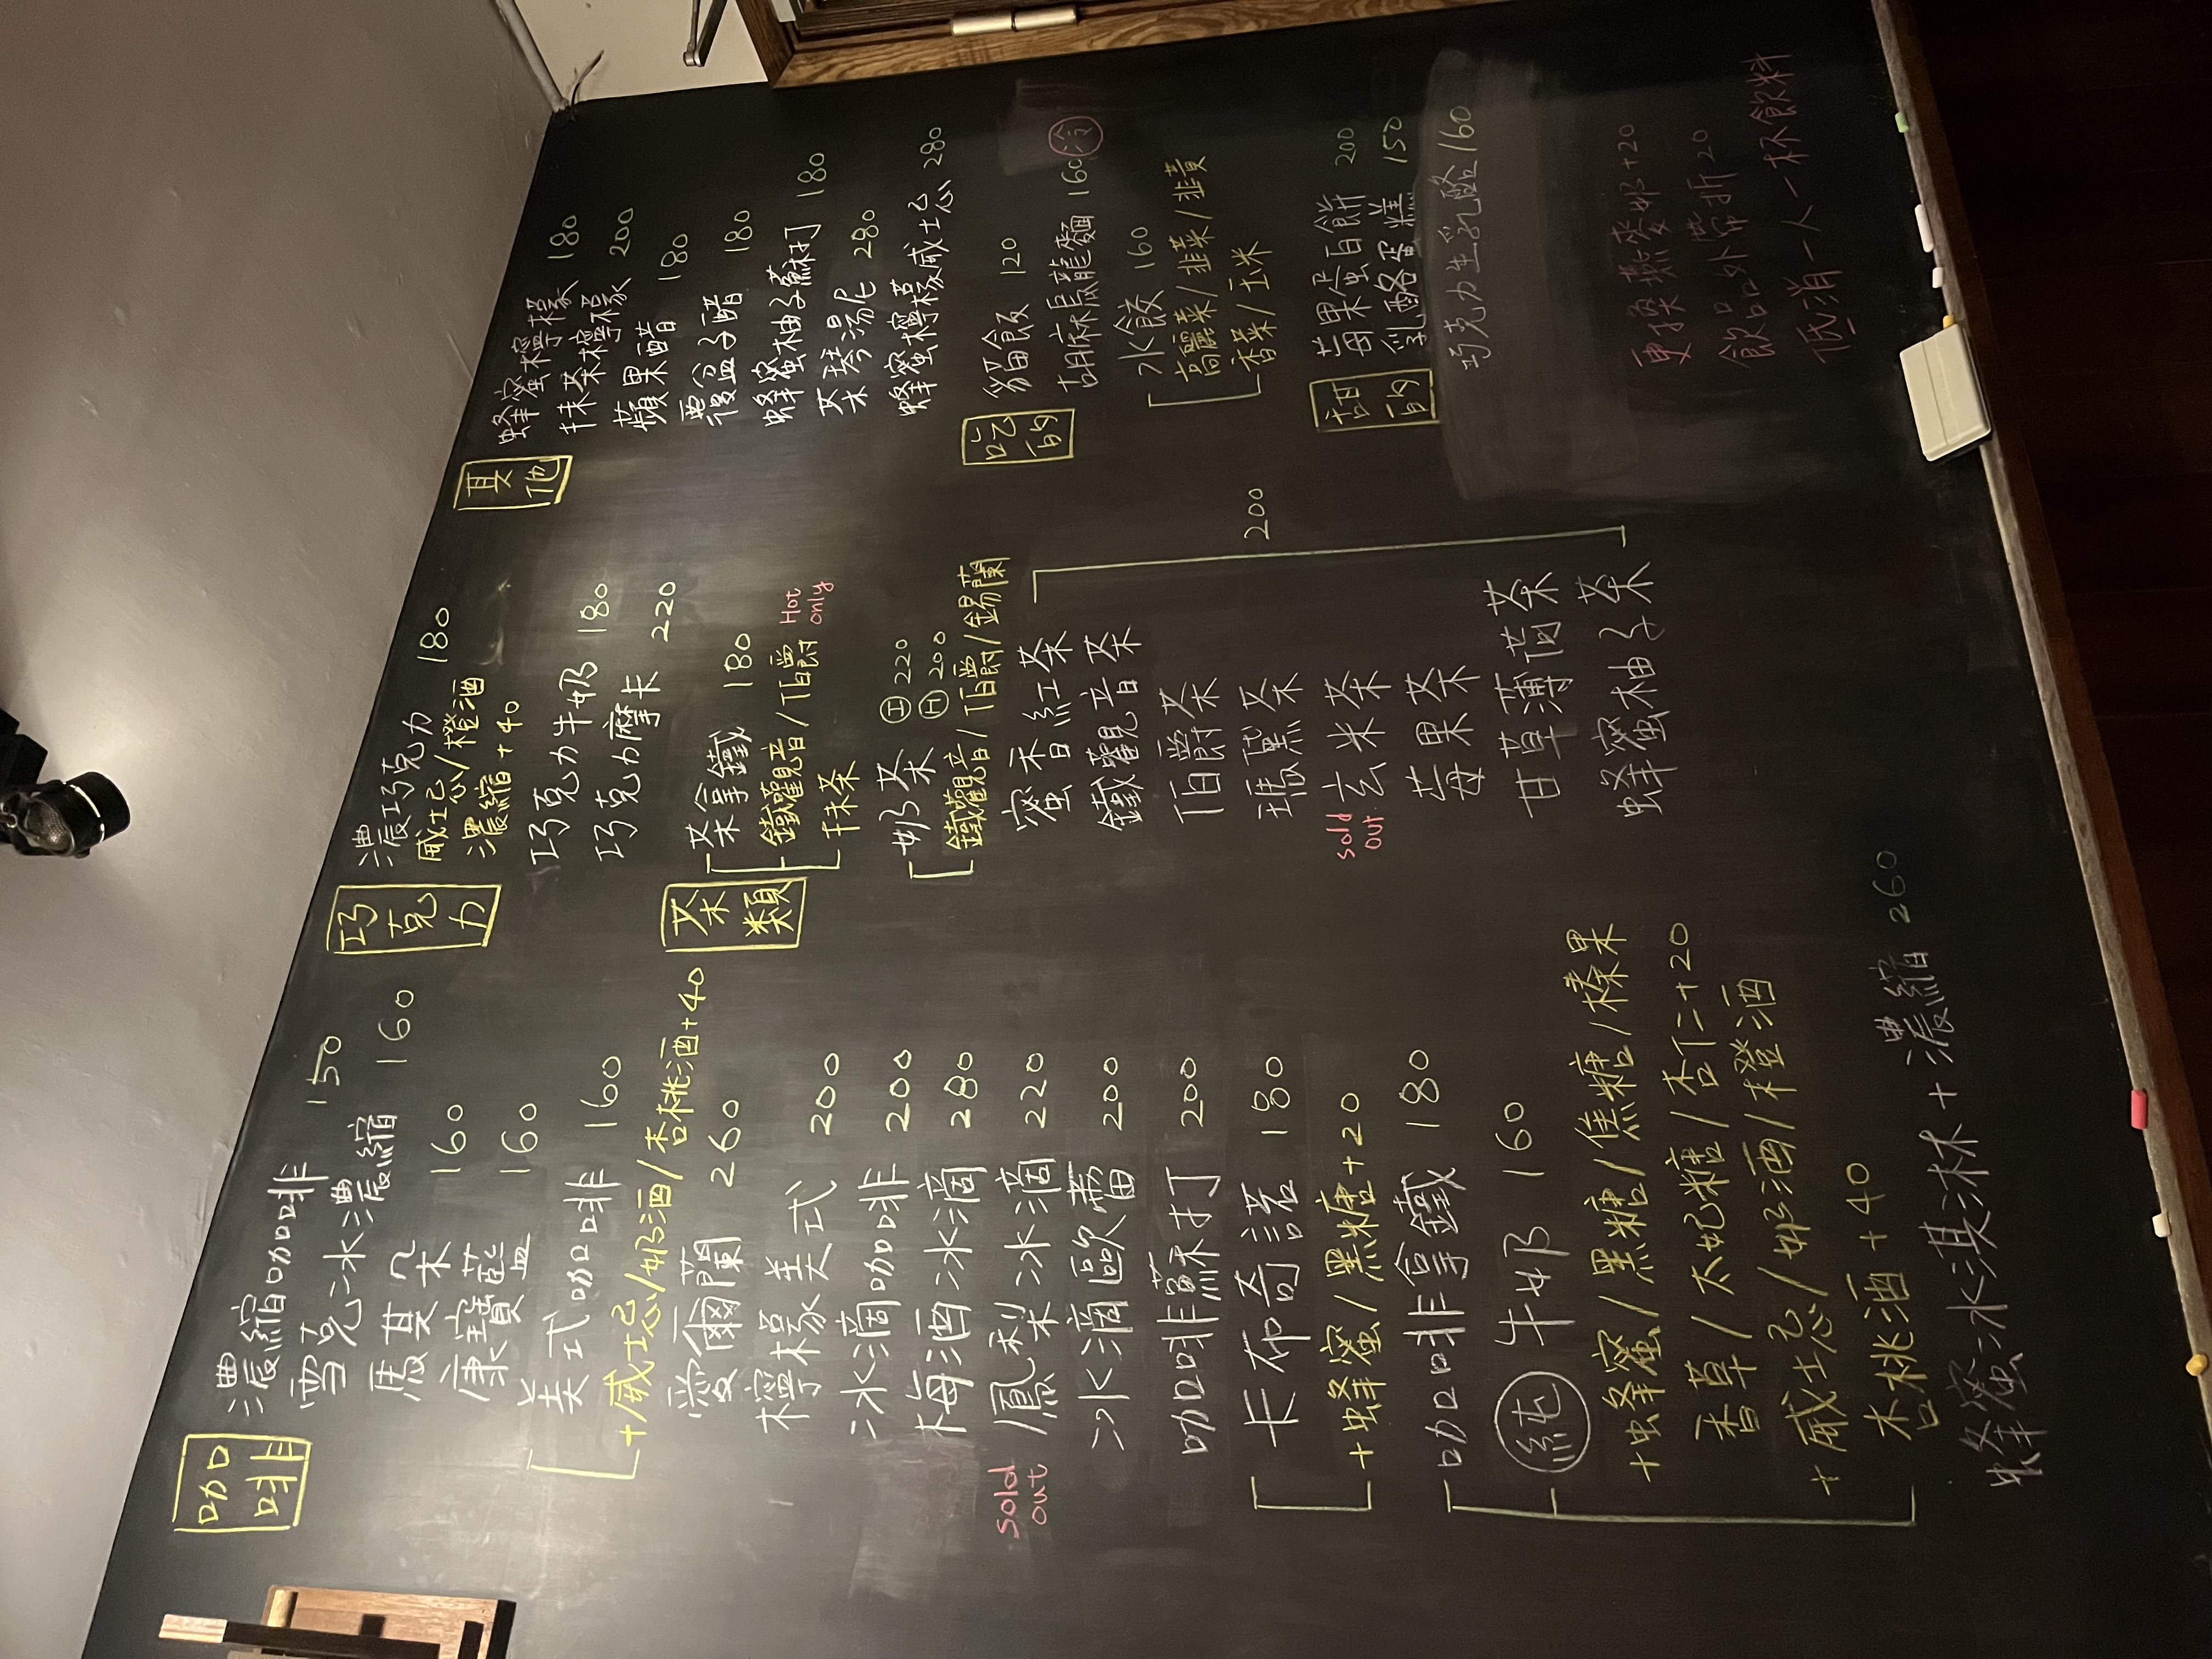 咖啡
濃縮咖啡 150
雪克冰濃縮 160
瑪其朵 160
康寶藍 160
美式咖啡 160
+威士忌/奶酒/杏桃酒+40
愛爾蘭 260
檸檬美式 200
冰滴咖啡 200
梅酒冰滴 280
sold out 鳳梨冰滴 220
冰滴歐蕾 200
咖啡蘇打 200
卡布奇諾 180
+蜂蜜/黑糖+20
咖啡拿鐵 180
純 牛奶 160
+蜂蜜/黑糖/焦糖/榛果
香草/太妃糖/杏仁+20
+威士忌/奶酒/橙酒
杏桃酒+40
蜂蜜冰淇淋+濃縮 260
巧克力
濃巧克力 180
威士忌/橙酒
濃縮+40
巧克力牛奶 180
巧克力摩卡 220
茶類
茶拿鐵 180
鐵觀音/伯爵 Hot only
抹茶
奶茶 I 220
H 200
鐵觀音/伯爵/錫蘭
蜜香紅茶
鐵觀音茶
伯爵茶
瑪黛茶
sold out 玄米茶
莓果茶
甘草薄荷茶
蜂蜜柚子茶
200
其他
蜂蜜檸檬 180
抹茶檸檬 200
蘋果醋 180
覆盆子醋 180
蜂蜜柚子蘇打 180
茶琴湯尼 280
蜂蜜檸檬威士忌 280
吃的
貓飯 120
胡麻烏龍麵 160 冷
水餃 160
高麗菜/韭菜/韭黃
香菜/玉米
甜的
莓果蛋白餅 200
乳酪蛋糕 150
巧克力生乳酪 160
更換燕麥奶+20
飲品外帶折20
低消一人一杯飲料